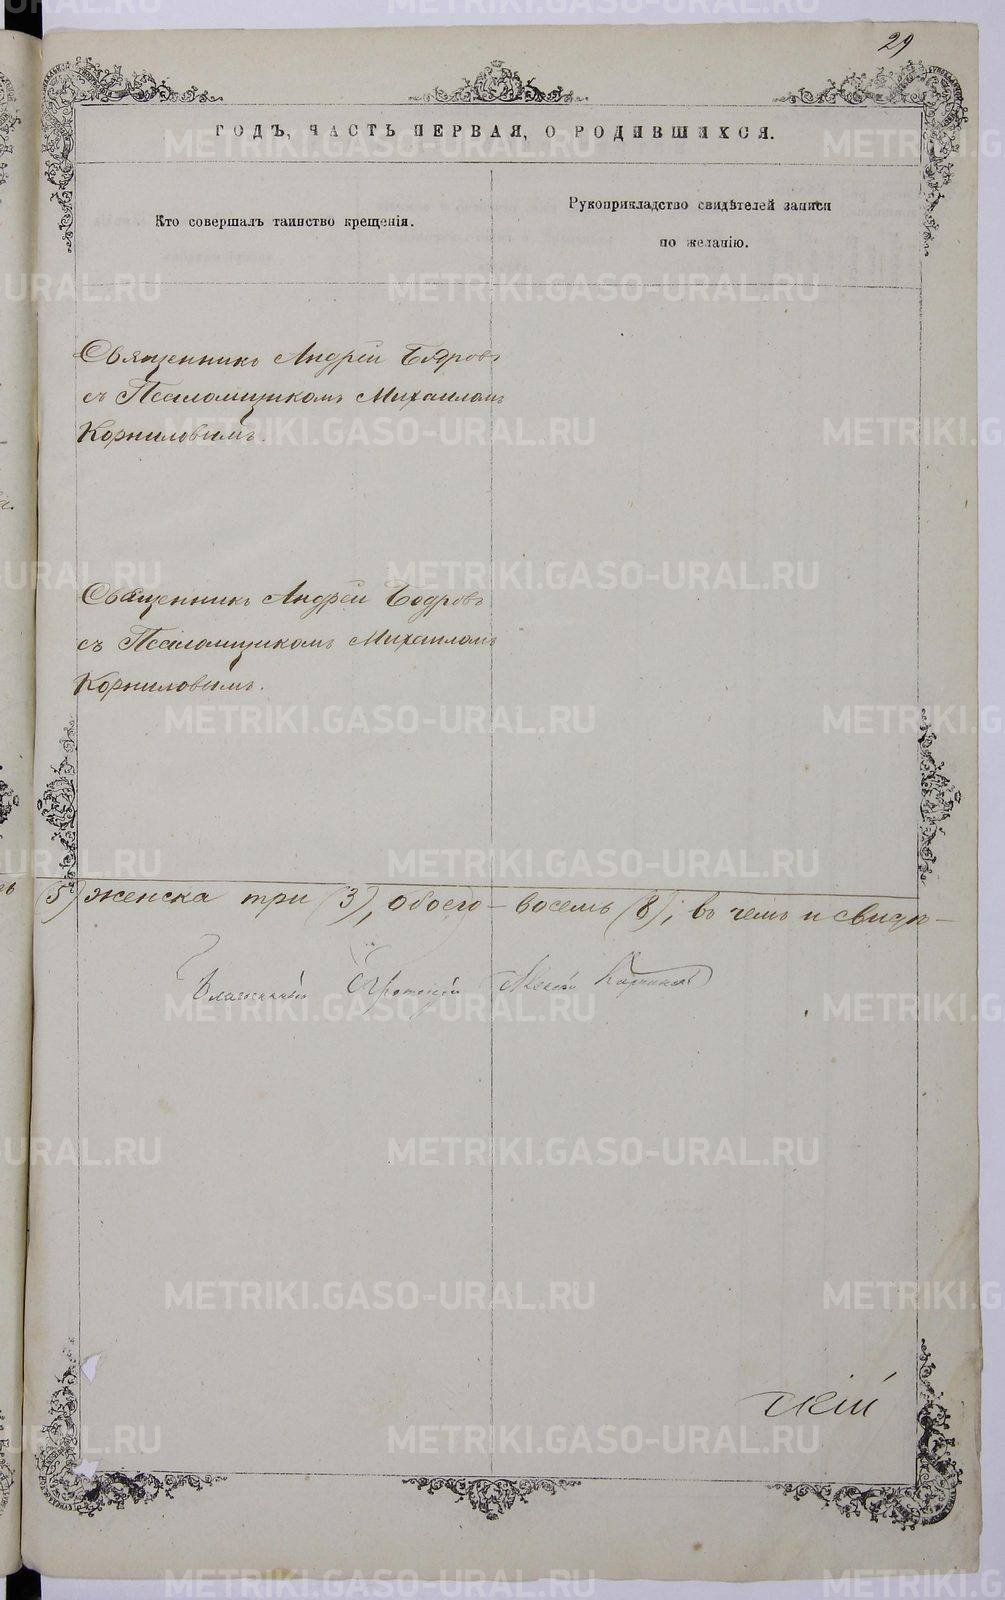 29
ГОДЪ, ЧАСТЬ ПЕРВАЯ, О РОДИВШИХСЯ.
Кто совершалъ таинство крещенія.
Рукоприкладство свидѣтелей записи
по желанію.
Священникъ Андрей Бодровъ
съ Псаломщикомъ Михаиломъ
Корниловымъ.
Священникъ Андрей Бодровъ
съ Псаломщикомъ Михаиломъ
Корниловымъ.
(5) женска три (3), обоего – восемь (8); въ чемъ и свидѣ–
Благочинный Протоіерей
скій
METRIKI.GASO-URAL.RU